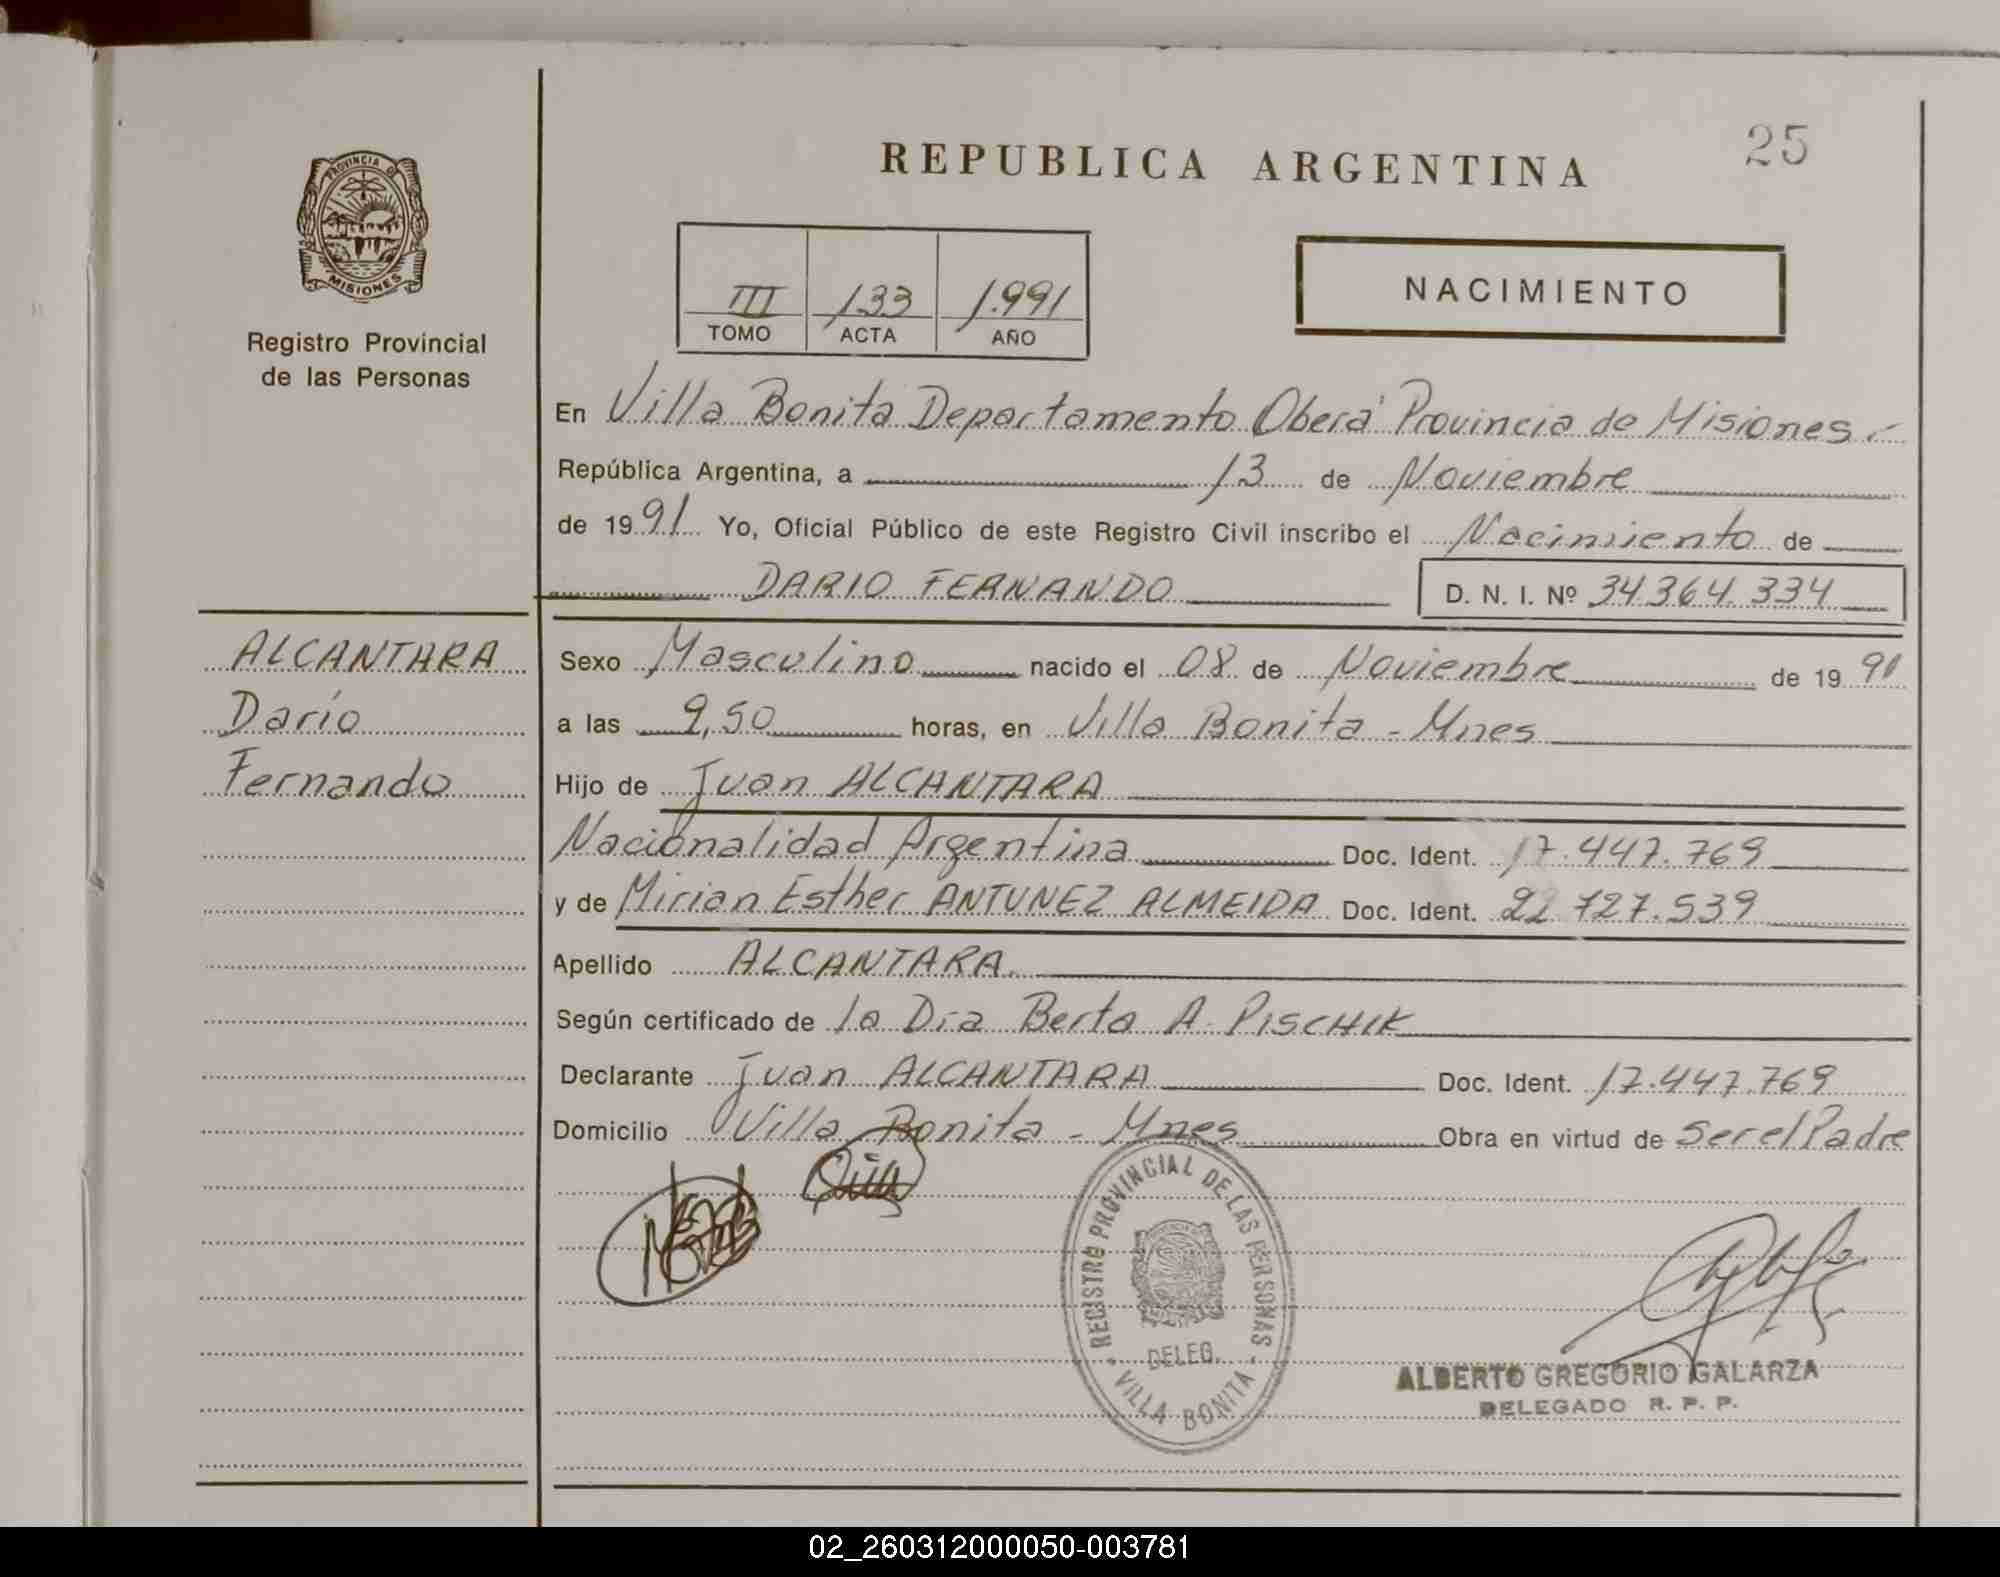 25
REPUBLICA ARGENTINA
PROVINCIA DE
MISIONES
Registro Provincial
de las Personas
III 133 1.991
TOMO ACTA AÑO
NACIMIENTO
En Villa Bonita Departamento Oberá Provincia de Misiones.-
República Argentina, a 13 de Noviembre
de 1991 Yo, Oficial Público de este Registro Civil inscribo el Nacimiento de
DARIO FERNANDO D. N. I. Nº 34.364.334
ALCANTARA
Darío
Fernando
Sexo Masculino nacido el 08 de Noviembre de 1991
a las 9,50 horas, en Villa Bonita - Mnes
Hijo de Juan ALCANTARA
Nacionalidad Argentina Doc. Ident. 17.447.769
y de Mirian Esther ANTUNEZ ALMEIDA Doc. Ident. 22.727.539
Apellido ALCANTARA.
Según certificado de la Dra Berta A. PISCHIK
Declarante Juan ALCANTARA Doc. Ident. 17.447.769
Domicilio Villa Bonita - Mnes Obra en virtud de Ser el Padre
REGISTRO PROVINCIAL DE LAS PERSONAS
DELEG.
VILLA BONITA
ALBERTO GREGORIO GALARZA
DELEGADO R. P. P.
02_260312000050-003781